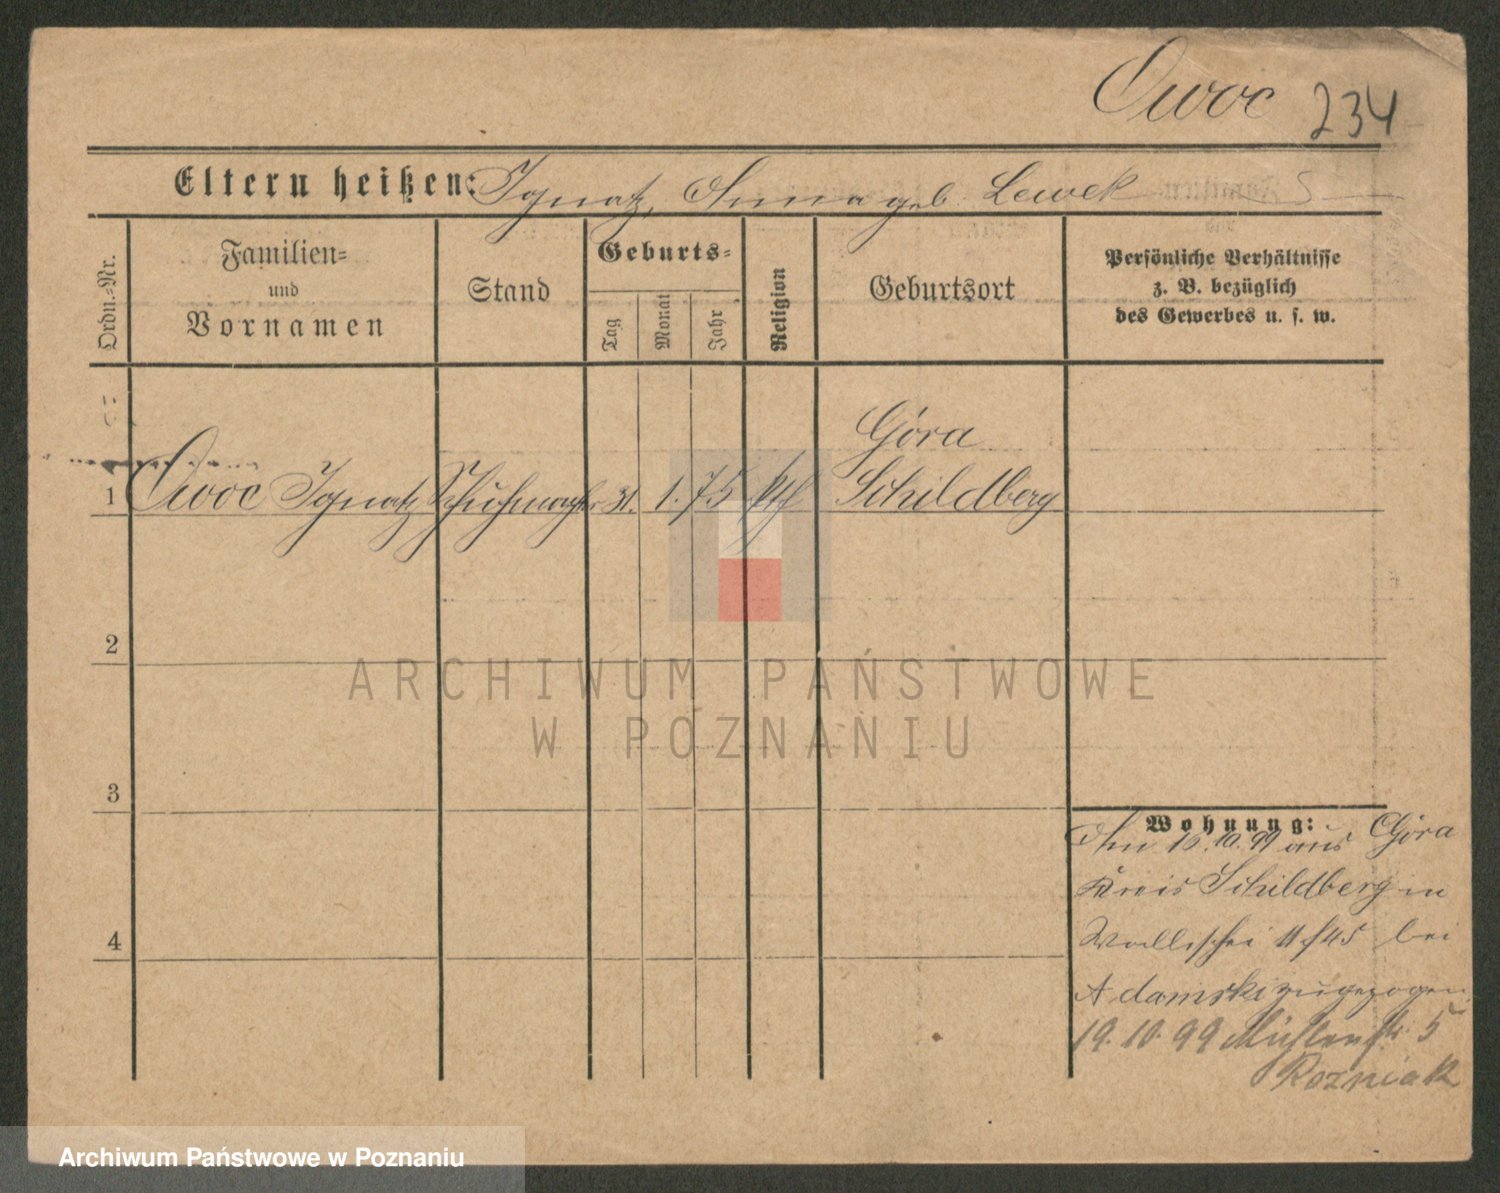 Owoc 234
Eltern heißen: Ignatz, Anna geb. Lewek
Ordn.-Nr.
Familien-
und
Vornamen
Stand
Geburts-
Tag
Monat
Jahr
Religion
Geburtsort
Persönliche Verhältnisse
z. B. bezüglich
des Gewerbes u. s. w.
Góra
1 Owoc Ignatz Schuhmacher 31. 1. 75 kth Schildberg
2
3
4
Wohnung:
10.10.99 aus Góra
Kreis Schildberg in
Wallischei 45 bei
Adamski zugezogen
19.10.99 Mühlenstr. 5
Rozniak
ARCHIWUM PAŃSTWOWE
W POZNANIU
Archiwum Państwowe w Poznaniu